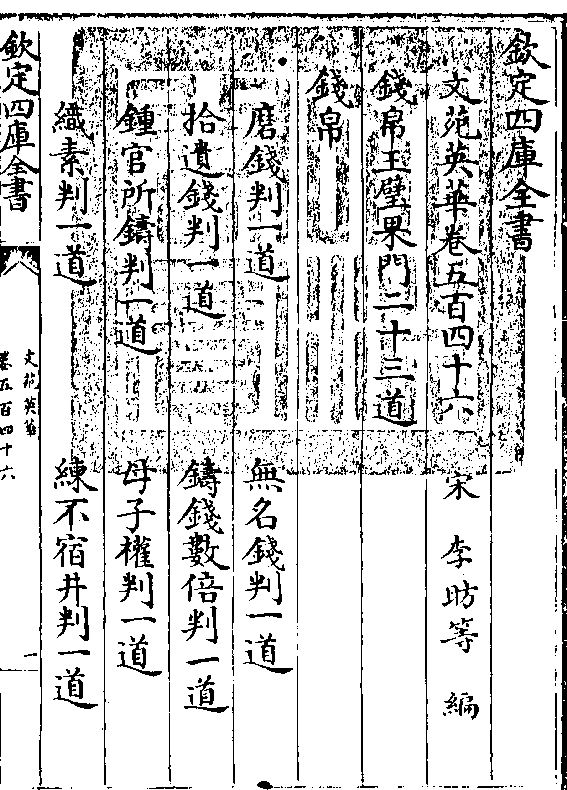 欽定四庫全書
文苑英華卷五百四十六
宋 李昉等 編
錢帛玉璧果門二十三道
錢帛
磨錢判一道 無名錢判一道
拾遺錢判一道 鑄錢數倍判一道
鍾官所鑄判一道 母子權判一道
織素判一道 練不宿井判一道
欽定四庫全書
文苑英華
卷五百四十六
一